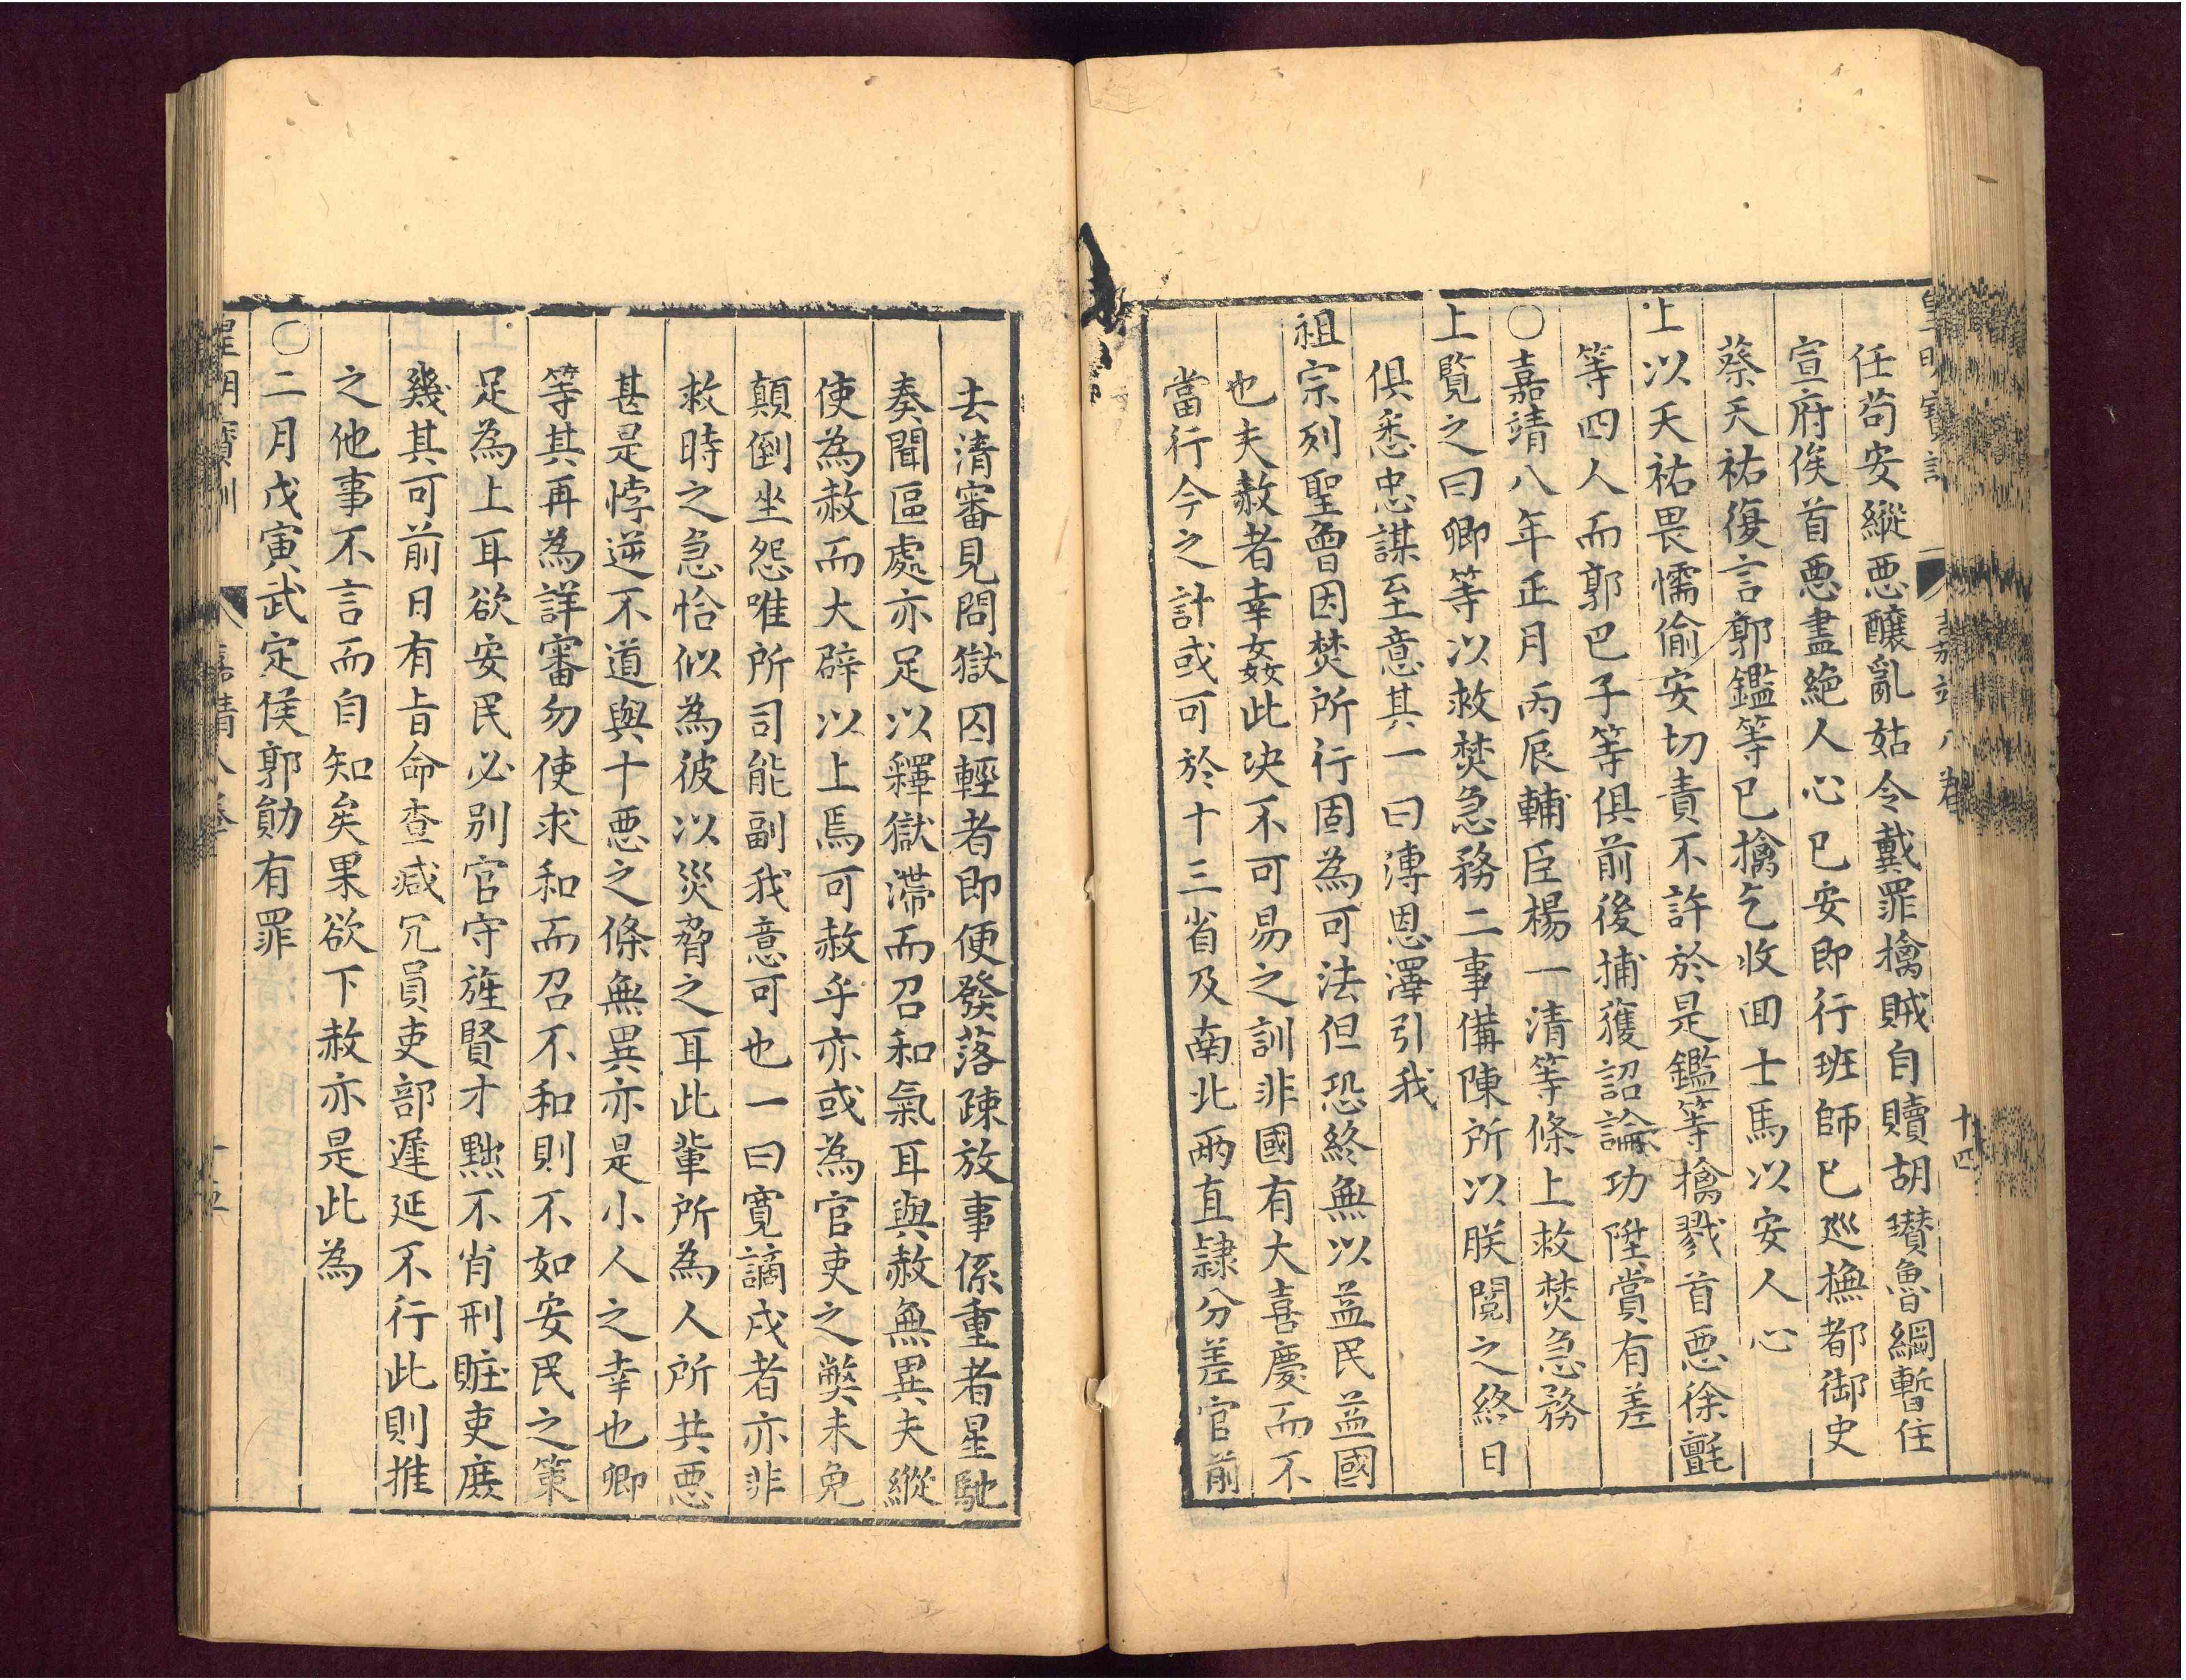 皇明寶訓 嘉靖八卷 十四
任苟安縱惡釀亂姑令戴罪擒賊自贖胡瓚魯綱暫住
宣府俟首惡盡絕人心已安即行班師已巡撫都御史
蔡天祐復言郭鑑等已擒乞收回士馬以安人心
上以天祐畏懦偷安切責不許於是鑑等擒戮首惡徐氈
等四人而郭巴子等俱前後捕獲詔論功陞賞有差
○嘉靖八年正月丙辰輔臣楊一清等條上救焚急務
上覽之曰卿等以救焚急務二事備陳所以朕閱之終日
俱悉忠謀至意其一曰溥恩澤引我
祖宗列聖曾因焚所行固為可法但恐終無以益民益國
也夫赦者幸姦此决不可易之訓非國有大喜慶而不
當行今之計或可於十三省及南北兩直隸分差官前
去清審見問獄囚輕者即便發落疎放事係重者星馳
奏聞區處亦足以釋獄滯而召和氣耳與赦無異夫縱
使為赦而大辟以上焉可赦乎亦或為官吏之獘未免
顛倒坐怨唯所司能副我意可也一曰寬謫戍者亦非
救時之急恰似為彼以災脅之耳此輩所為人所共惡
甚是悖逆不道與十惡之條無異亦是小人之幸也卿
等其再為詳審勿使求和而召不和則不如安民之策
足為上耳欲安民必别官守旌賢才黜不肖刑贓吏庶
幾其可前日有旨命查减冗員吏部遲延不行此則推
之他事不言而自知矣果欲下赦亦是此為
○二月戊寅武定侯郭勛有罪
皇明寶訓 嘉靖八卷 十五